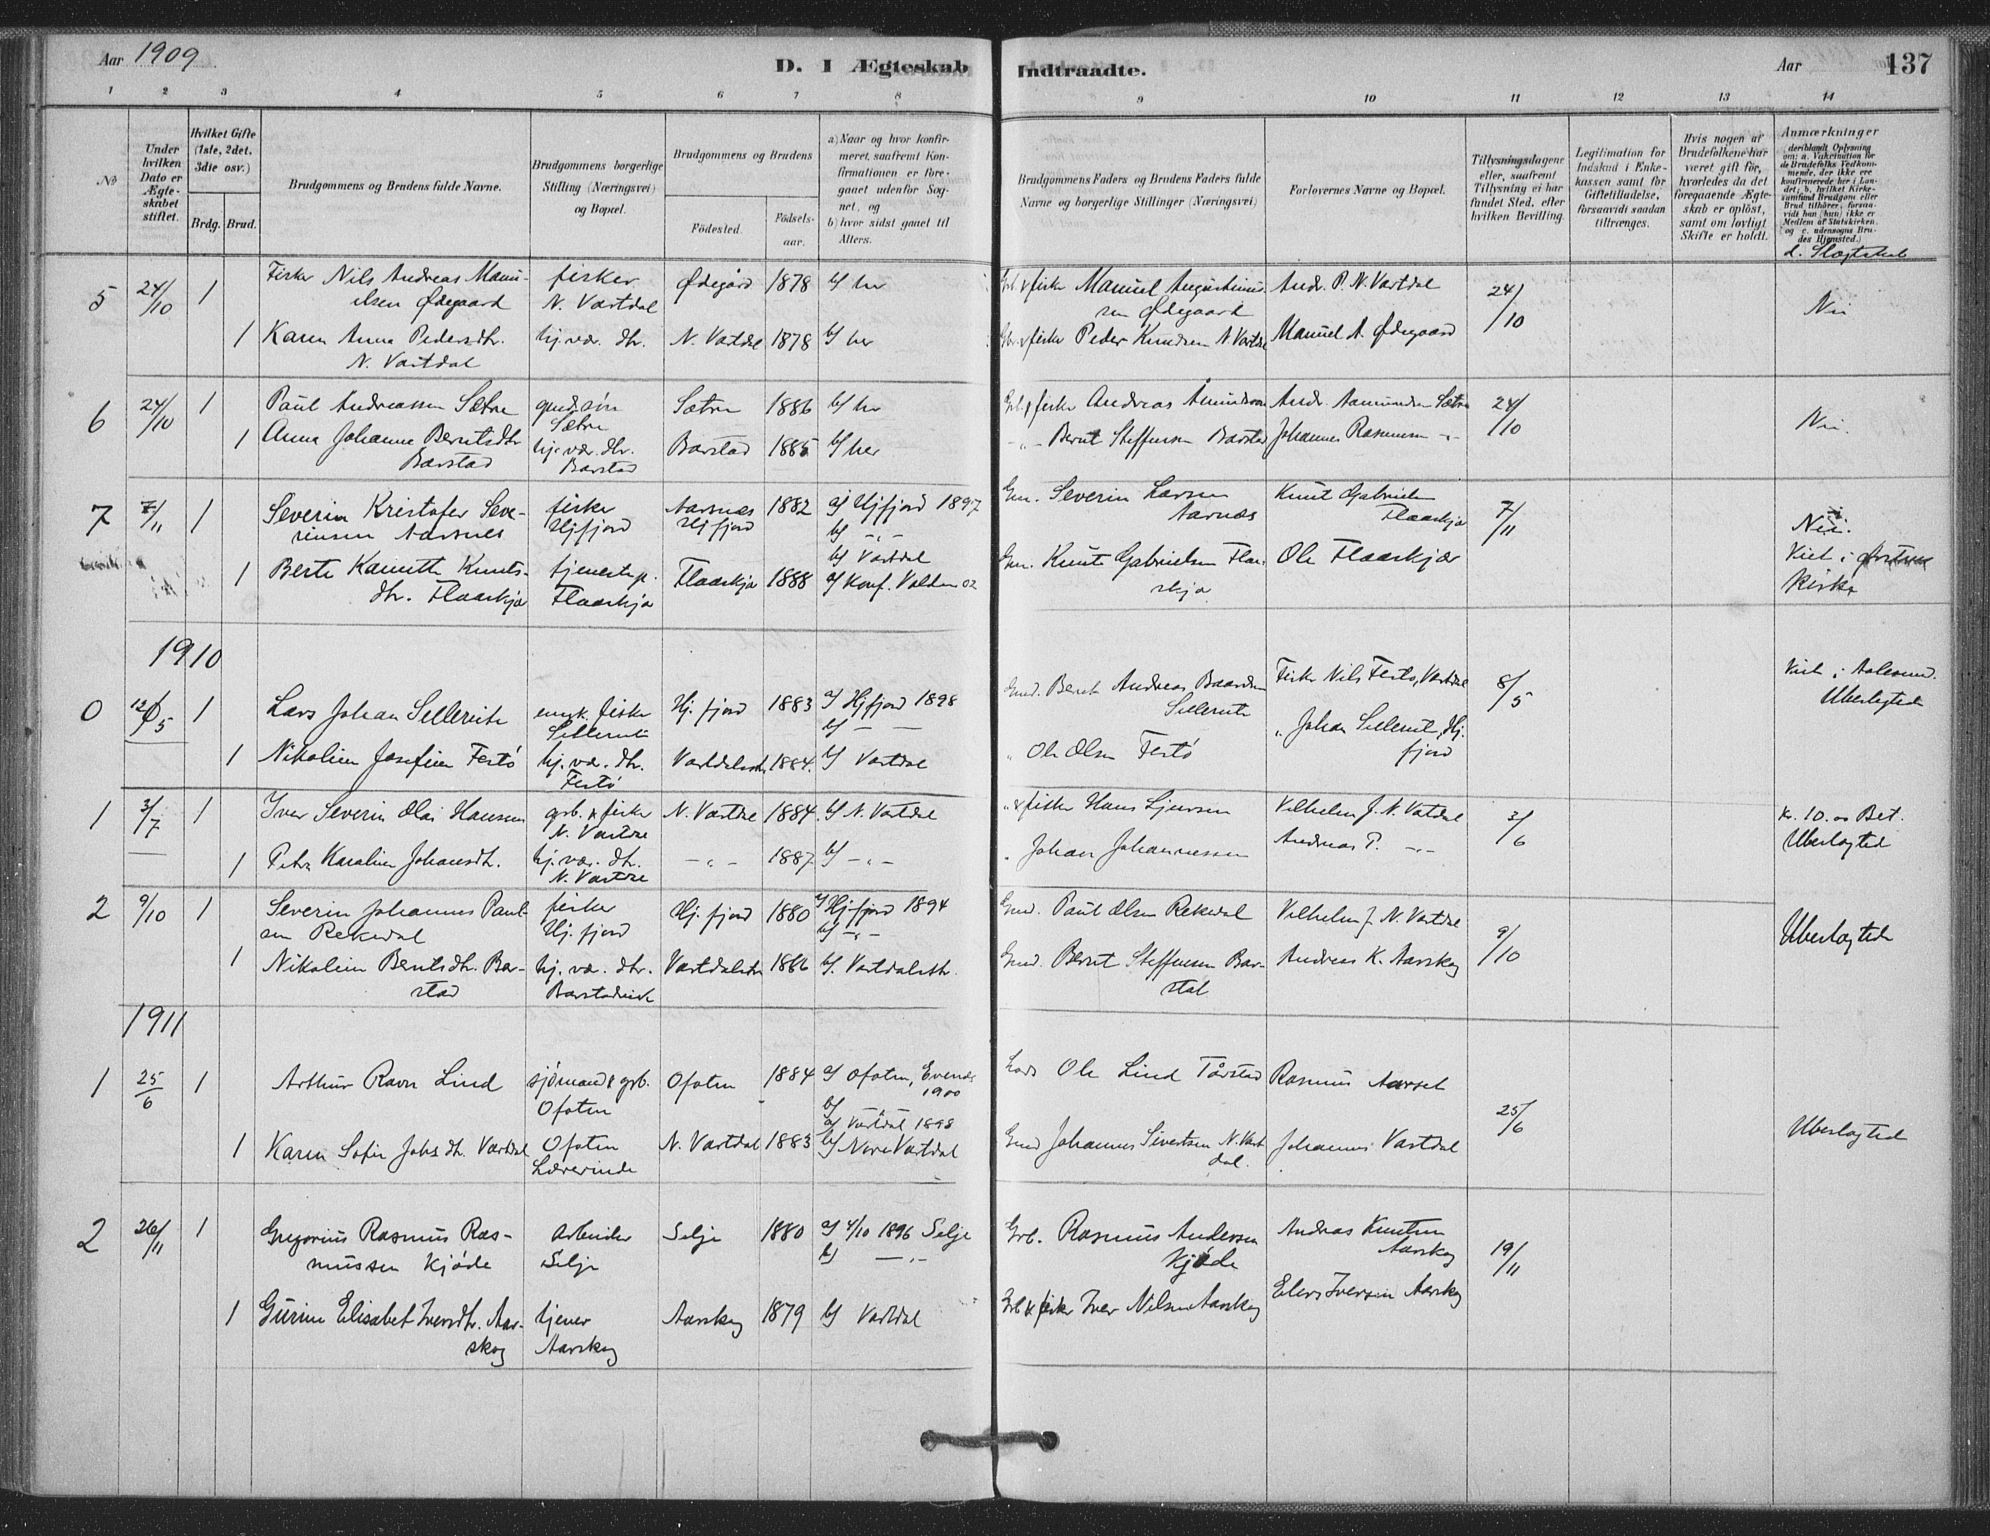 Aar 1909
D. I Ægteskab Indtraadte.
Aar
137
1 2 3 4 5 6 7 8 9 10 11 12 13 14
No
Under hvilken Dato er Ægteskabet stiftet.
Hvilket Gifte (1ste, 2det, 3die osv.)
Brdg. Brud.
Brudgommens og Brudens fulde Navne.
Brudgommens borgerlige Stilling (Næringsvei) og Bopæl.
Brudgommens og Brudens
Fødested.
Fødsels-aar.
a) Naar og hvor konfirmeret, saafremt Konfirmationen er foregaaet udenfor Sognet, og
b) hvor sidst gaaet til Alters.
Brudgommens Faders og Brudens Faders fulde Navne og borgerlige Stillinger (Næringsvei)
Forlovernes Navne og Bopæl.
Tillysningsdagene eller, saafremt Tillysning ei har fundet Sted, efter hvilken Bevilling.
Legitimation for Indskud i Enkekassen samt for Giftetilladelse, forsaavidt saadan tiltrænges.
Hvis nogen af Brudefolkene har været gift før, hvorledes da det foregaaende Ægteskab er opløst, samt om lovligt Skifte er holdt.
Anmærkninger
deriblandt Oplysning om: a. Vakcination for de Brudefolks Vedkommende, der ikke ere konfirmerede her i Landet; b. hvilket Kirkesamfund Brudgom eller Brud tilhører, forsaavidt han (hun) ikke er Medlem af Statskirken, og c. udensogns Brudes Hjemsted.)
d. Slægtskab
5 24/10 1 Fisker Nils Andreas Manuelsen Ødegaard fisker N. Vartdal Ødegård 1878 b) her
Grb. & fisker Manuel Augustinussen Ødegaard Andr. P. N. Vartdal 24/10 Nei
1 Karen Anna Pedersdtr. N. Vartdal hj.vær. dtr. N. Vartdal 1878 b) her
Peder Knudsen N Vartdal Manuel A. Ødegaard
6 24/10 1 Paul Andreassen Sætre gmds.søn Sætre Sætre 1886 b) her
Grb. & fisker Andreas Amundsen Andr. Aamundsen Sætre 24/10 Nei.
1 Anna Johanne Berntsdtr Barstad hj.vær. dtr. Barstad Barstad 1885 b) her
-"- Bernt Steffensen Barstad Johannes Rasmussen -"-
7 7/11 1 Severin Kristofer Severinsen Aarsnes fisker Hjfjord Aarsnes Hjfjord 1882 a) Hjfjord 1897 b) -"-
Gm. Severin Larsen Aarnæs Knut Gabrielsen Flaaskjær 7/11 Nei.
1 Berte Kanutte Knutsdtr. Flaaskjær tjenestep. Flaaskjær Flaaskjær 1888 b) Vartdal a) Konf. Volden 02
Gm. Knut Gabrielsen Flaaskjær Ole Flaaskjær Viet i Kirke
1910
0 12/5 1 Lars Johan Sellereite fisker Hj.fjord 1883 a) Hjfjord 1898 b) — —
Gmd. Bernt Andreas Baardsen Sellereite Fisker Nils Festø, Vartdal 8/5 Viet i Aalesund. Ubeslægted
1 Nikoline Josefine Festø hj.vær. dtr. Festø Vartdalsstr. 1884. b) Vartdal
" Ole Olsen Festø " Johan Sellereit, Hj.fjord
1 3/7 1 Iver Severin Olai Hansen grb. & fisker N. Vartdal N. Vartdal 1884. b) N. Vartdal
" & fisker Hans Vilhelm J. N. Vatdal 3/6 Kr. 10.00 Bet. Ubeslægted
1 Petra Karoline Johansdtr. hj.vær. dtr. N. Vartdal -"- 1887 b) -"-
" Johan Johannessen Andreas P. -"-
2 9/10 1 Severin Johannes Paulsen Rekedal fisker Hj.fjord Hj.fjord 1880 a) Hjfjord 1894 b) -"-
Gmd. Paul Olsen Rekedal Vilhelm J. N. Vartdal 9/10 Ubeslægted
1 Nikoline Berntsdtr. Barstad hj.vær. dtr. Vartdalsstr 1886 b) Vartdalsstr.
Gmd. Bernt Steffensen Barstad Andreas K. Aarskog
1911
1 25/6 1 Arthur Ravn Lind sjømand & grb. Ofoten Ofoten 1884 a) Ofoten, Evenes 1900 b)
Ole Lind Tårstad Rasmus Aarset 25/6 Ubeslægted
1 Karen Sofie Johs dtr. Vartdal Ofoten Lærerinde N. Vartdal 1883 a) Vartdal 1898 b) Nore Vartdal
Gmd Johannes Sivertsen N. Vartdal. Johannes Vartdal
2 26/11 1 Gregorius Rasmus Rasmussen Kjøde arbeider Selje Selje 1880 a) 4/10 1896 Selje b) —"—
Grb. Rasmus Andersen Kjøde Andreas Knutsen Aarskog 19/11
1 Gurine Elisabet Iversdtr. Aarskog tjener Aarskog Aarskog 1879 b) Vartdal
Grb & fisker Iver Nilsen Aarskog Elias Iversen Aarskog